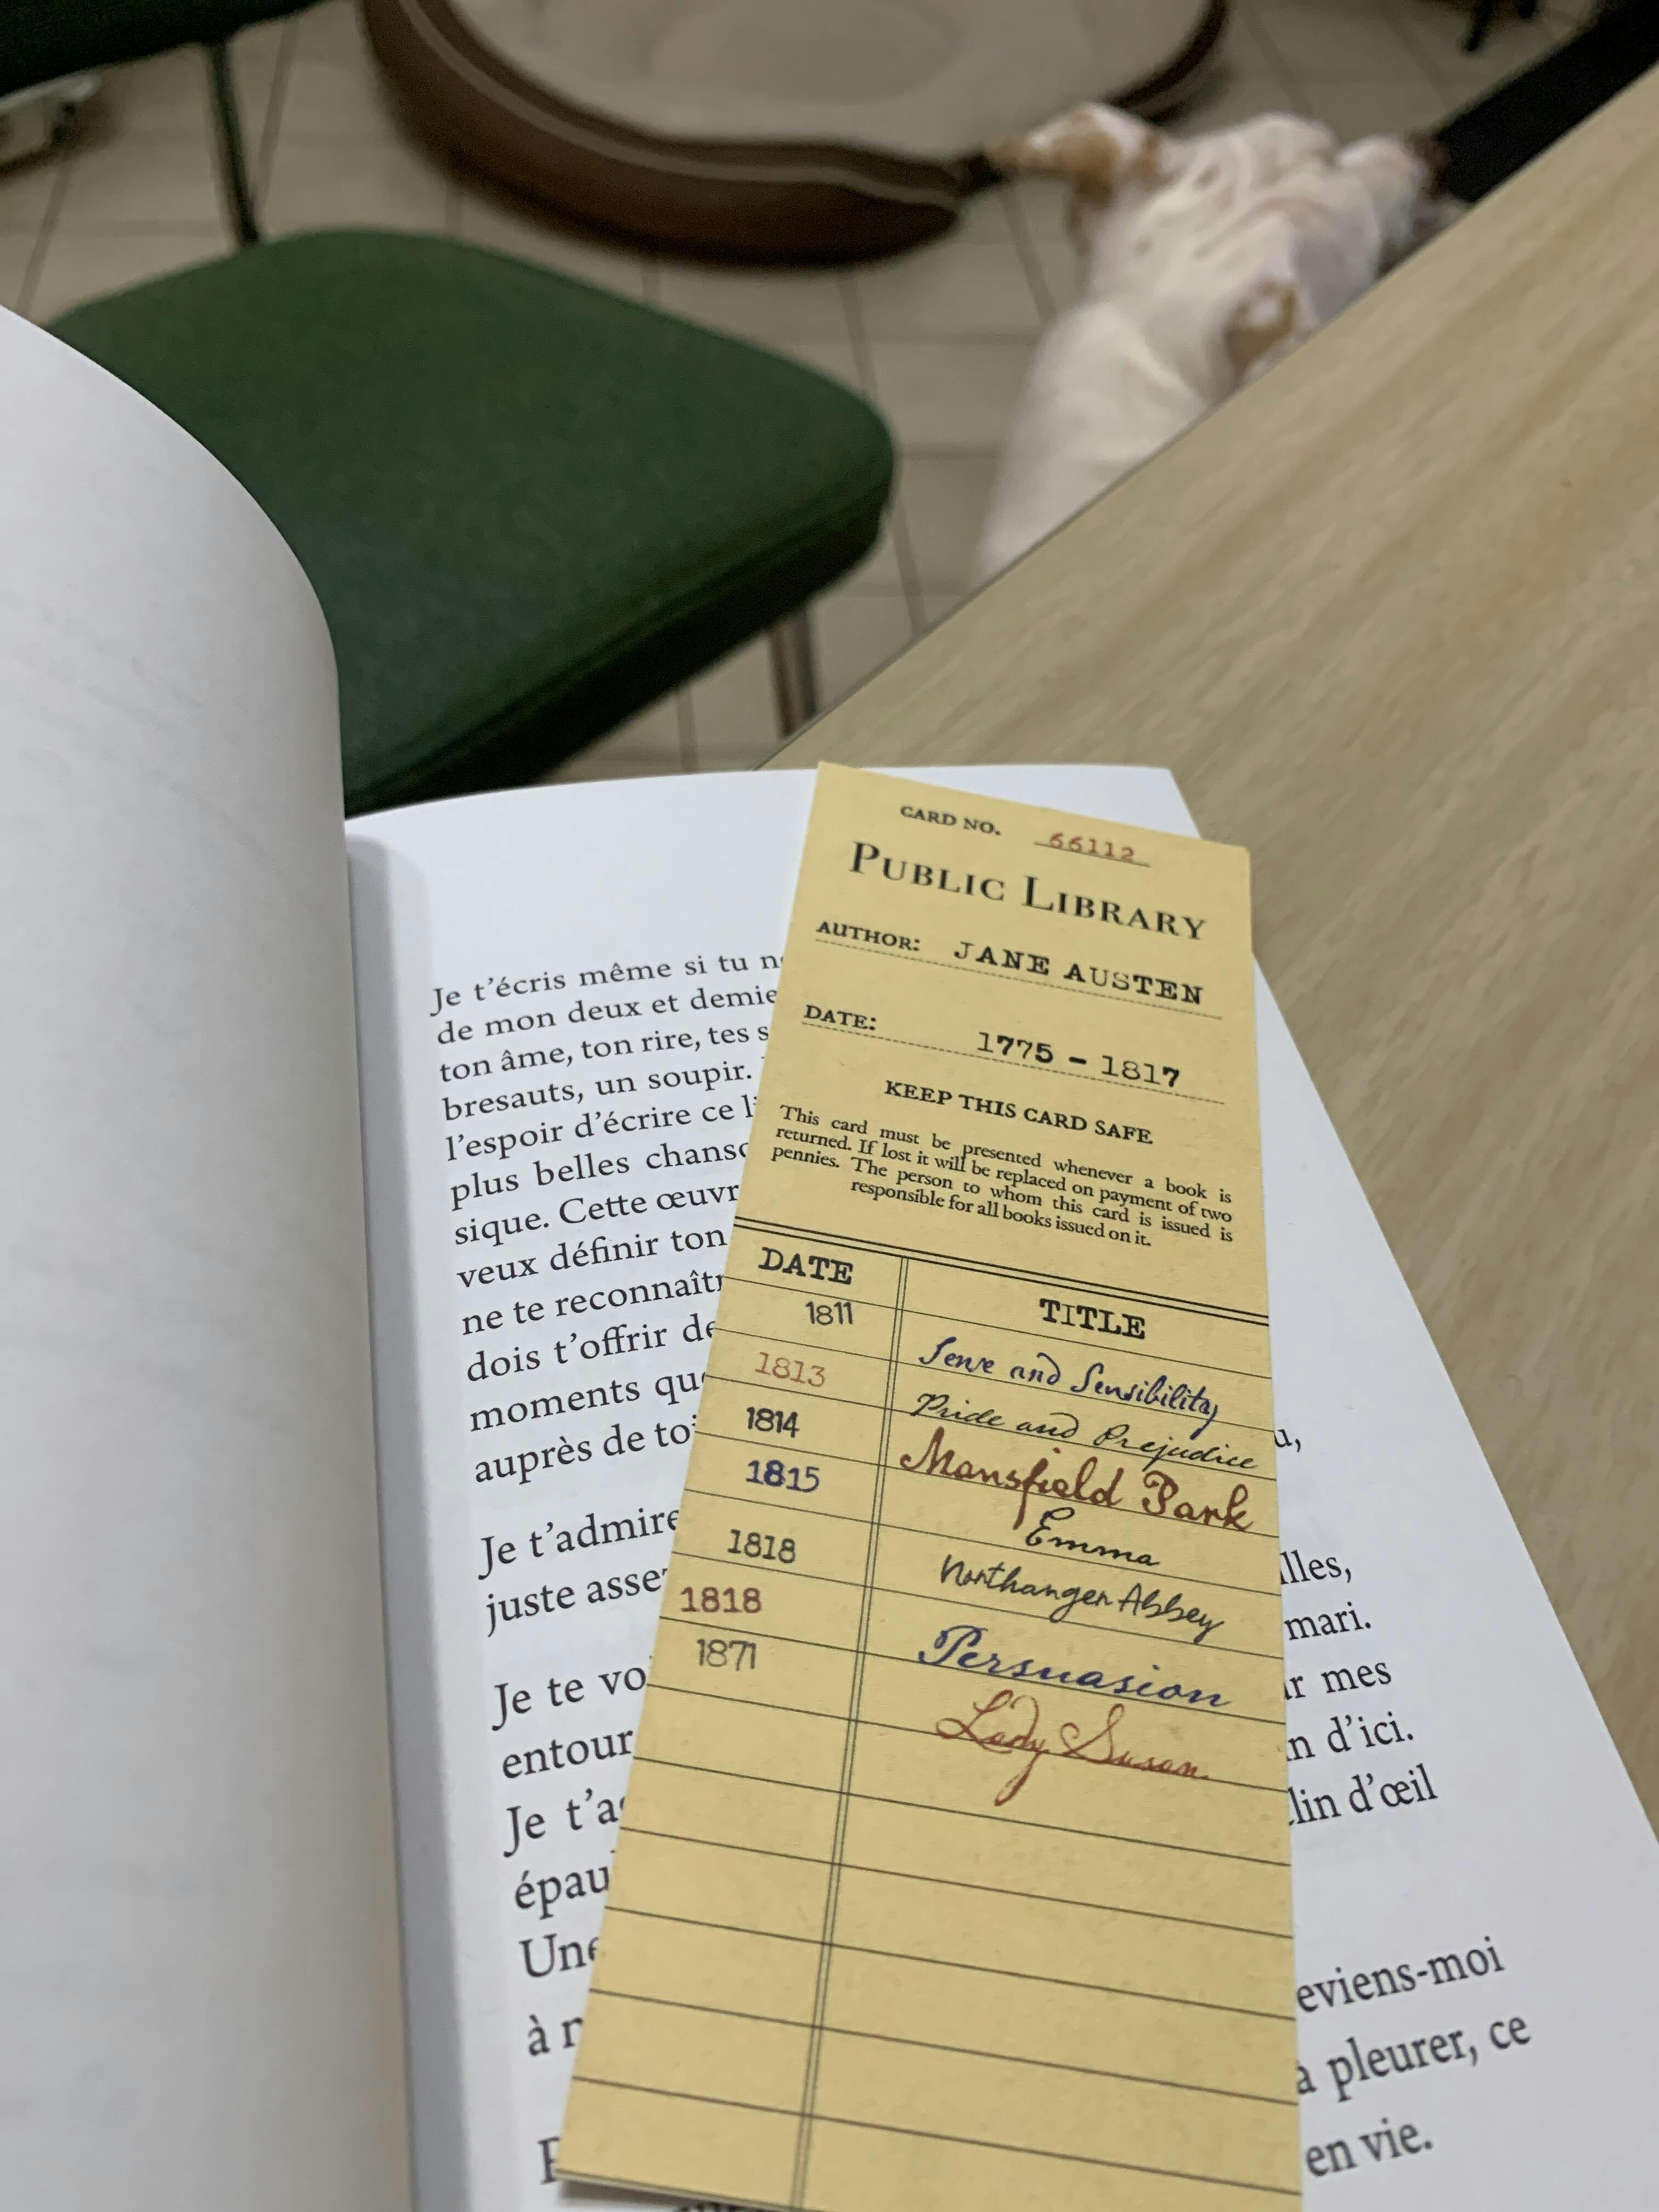 CARD NO. 66112
PUBLIC LIBRARY
AUTHOR: JANE AUSTEN
DATE: 1775 – 1817
KEEP THIS CARD SAFE
This card must be presented whenever a book is
returned. If lost it will be replaced on payment of two
pennies. The person to whom this card is issued is
responsible for all books issued on it.
DATE TITLE
1811 Sense and Sensibility
1813 Pride and Prejudice
1814 Mansfield Park
1815 Emma
1818 Northanger Abbey
1818 Persuasion
1871 Lady Susan
Je t'écris même si tu
de mon deux et demie
ton âme, ton rire, tes
bresauts, un soupir.
l'espoir d'écrire ce
plus belles
sique. Cette
veux définir ton
ne te
dois t'offrir
moments
auprès de
Je t'admire
juste
Je te
entour
Je
Une
à
mari.
mes
d'ici.
d'œil
pleurer, ce
en vie.